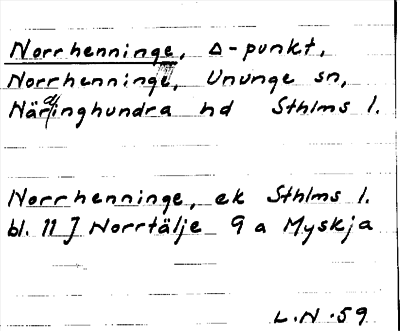 Norrhenninge, Δ-punkt,
Norrhenninge, Ununge sn,
Närdinghundra hd Sthlms l.
Norrhenninge, ek Sthlms l.
bl. 11 J Norrtälje 9 a Myskja
L.N.59